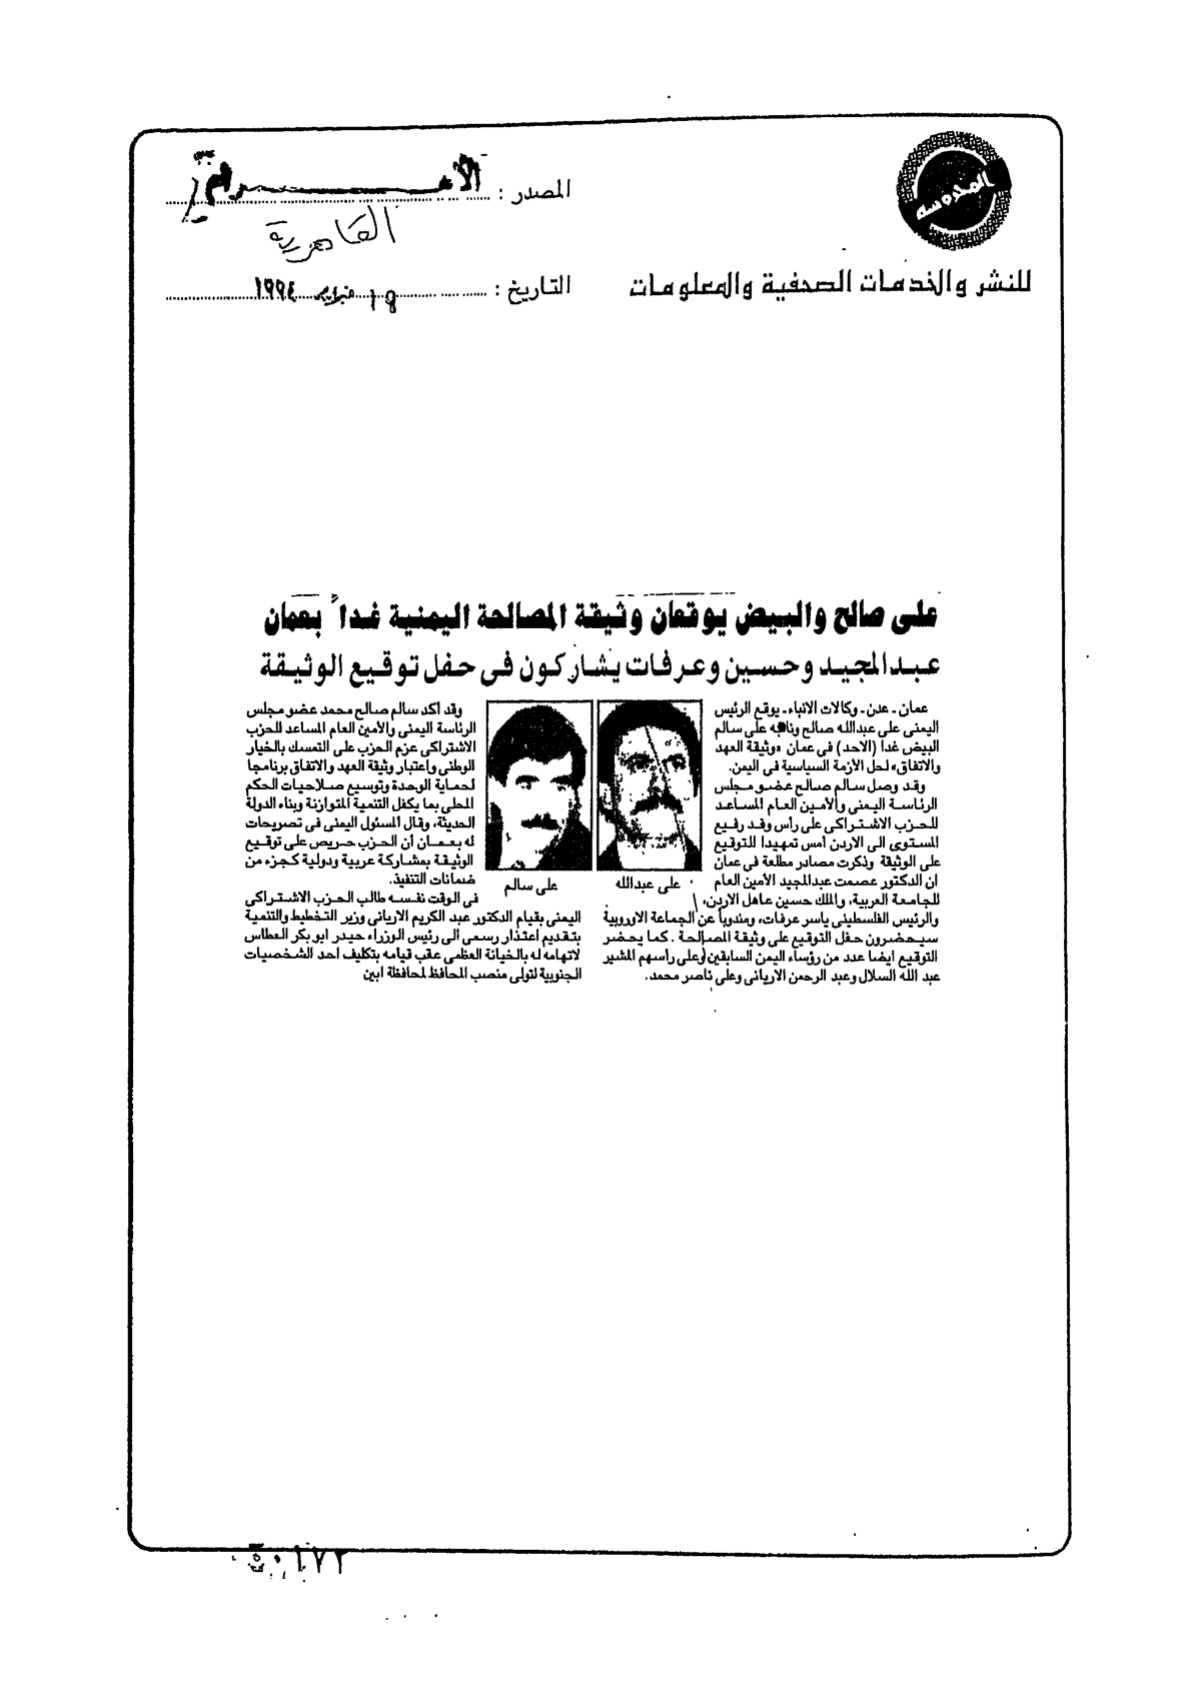 المحروسة
للنشر والخدمات الصحفية والمعلومات
المصدر : الأهرام
القاهرية
التاريخ : ١٩ فبراير ١٩٩٤
على صالح والبيض يوقعان وثيقة المصالحة اليمنية غداً بعمان
عبدالمجيد وحسين وعرفات يشاركون فى حفل توقيع الوثيقة
عمان ـ عدن ـ وكالات الانباء ـ يوقع الرئيس
اليمنى على عبدالله صالح ونائبه على سالم
البيض غدا (الاحد) فى عمان «وثيقة العهد
والاتفاق» لحل الازمة السياسية فى اليمن.
وقد وصل سالم صالح عضو مجلس
الرئاسة اليمنى والأمين العام المساعد
للحزب الاشتراكى على رأس وفد رفيع
المستوى الى الاردن أمس تمهيدا للتوقيع
على الوثيقة وذكرت مصادر مطلعة فى عمان
ان الدكتور عصمت عبدالمجيد الأمين العام
للجامعة العربية، والملك حسين عاهل الاردن،
والرئيس الفلسطينى ياسر عرفات، ومندوباً عن الجماعة الاوروبية
سيحضرون حفل التوقيع على وثيقة المصالحة . كما يحضر
التوقيع ايضا عدد من رؤساء اليمن السابقين وعلى راسهم المشير
عبد الله السلال وعبد الرحمن الاريانى وعلى ناصر محمد.
على عبدالله
على سالم
وقد اكد سالم صالح محمد عضو مجلس
الرئاسة اليمنى والأمين العام المساعد للحزب
الاشتراكى عزم الحزب على التمسك بالخيار
الوطنى واعتبار وثيقة العهد والاتفاق برنامجا
لحماية الوحدة وتوسيع صلاحيات الحكم
المحلى بما يكفل التنمية المتوازنة وبناء الدولة
الحديثة، وقال المسئول اليمنى فى تصريحات
له بعمان أن الحزب حريص على توقيع
الوثيقة بمشاركة عربية ودولية كجزء من
ضمانات التنفيذ.
فى الوقت نفسه طالب الحزب الاشتراكى
اليمنى بقيام الدكتور عبد الكريم الاريانى وزير التخطيط والتنمية
بتقديم اعتذار رسمى الى رئيس الوزراء حيدر ابو بكر العطاس
لاتهامه له بالخيانة العظمى عقب قيامه بتكليف احد الشخصيات
الجنوبية لتولى منصب المحافظ لمحافظة ابين